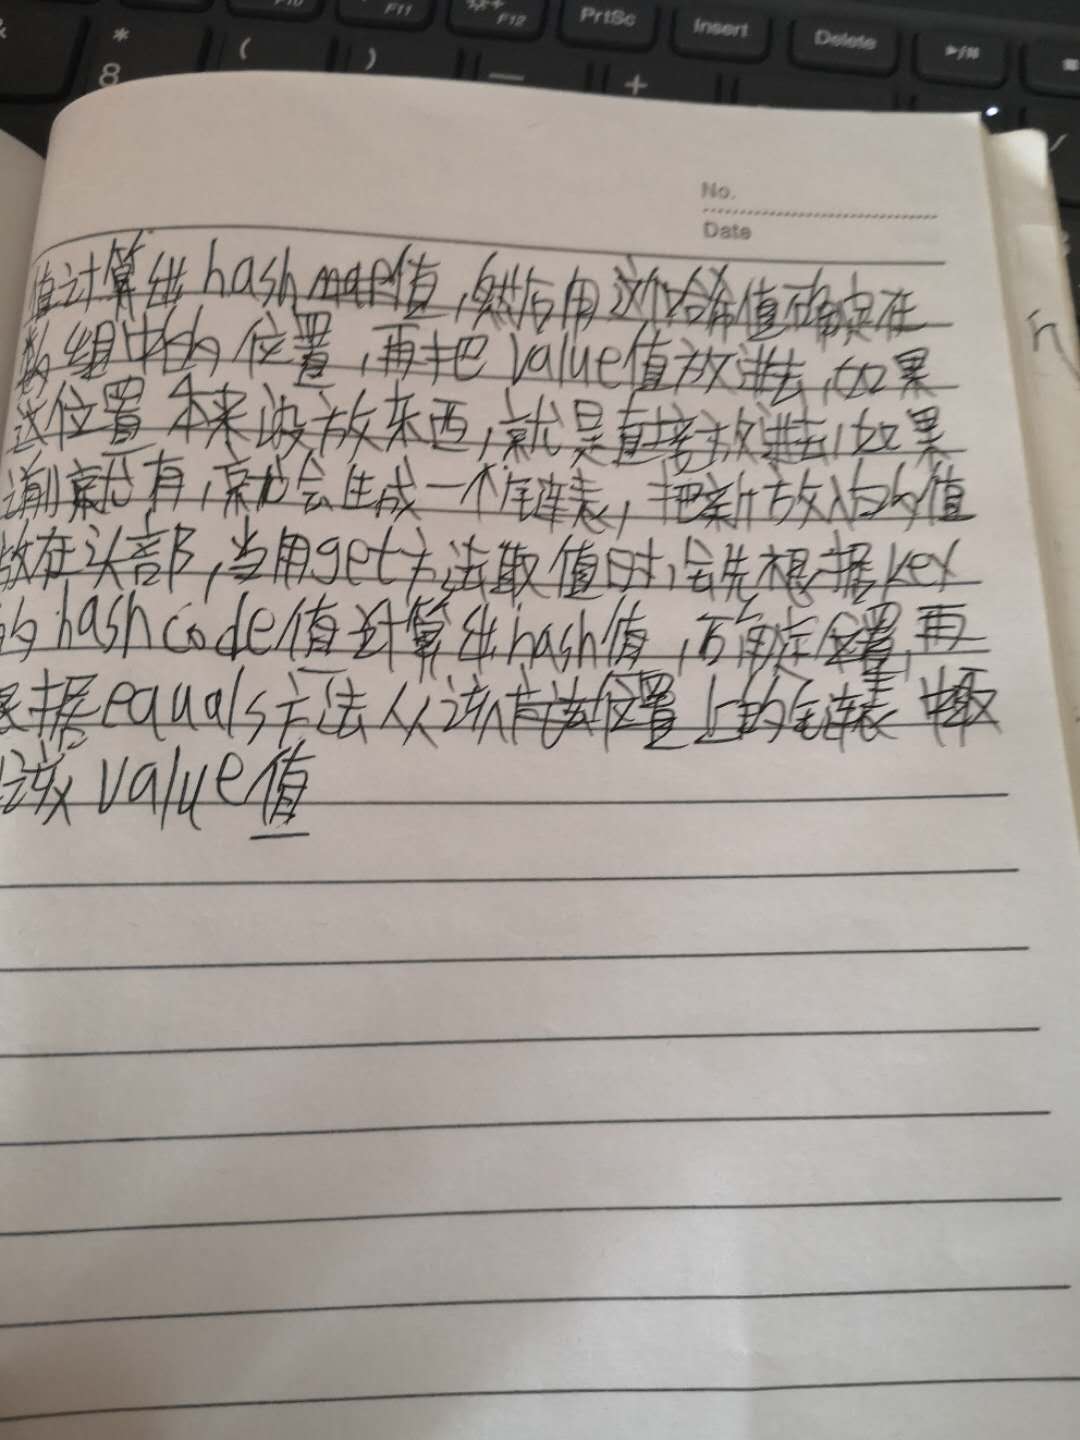 F10
F11
F12
PrtSc
Insert
Delete
*
8
(
)
—
+
No.
Date
值计算出hashmap值,然后用这个哈希值确定在
数组中的位置,再把value值放进去,如果
这位置本来没放东西,就是直接放进去,如果
前就有,就会生成一个链表,把新放入的值
放在头部,当用get方法取值时,会先根据key
的hashcode值计算出hash值,确定位置,再
根据equals方法从该位置上的链表中取
该value值